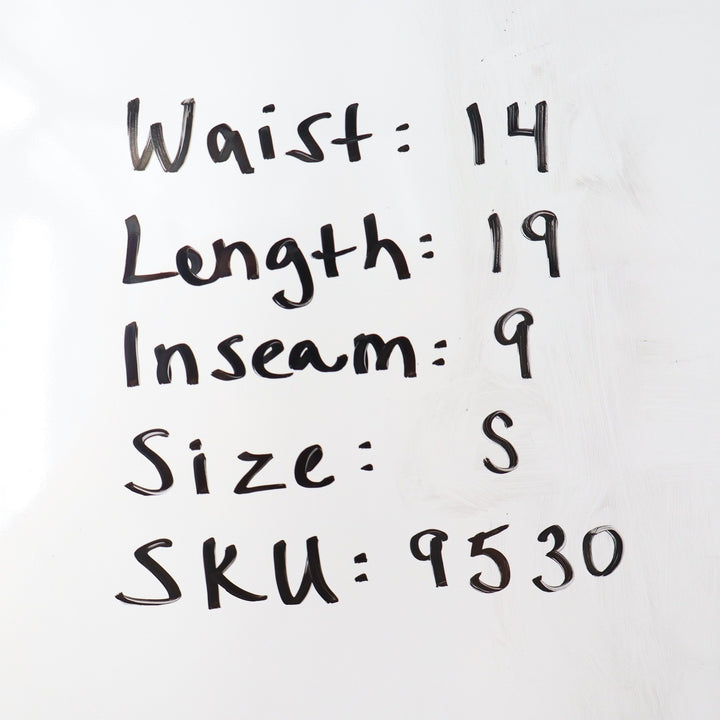 Waist: 14
Length: 19
Inseam: 9
Size: S
SKU: 9530